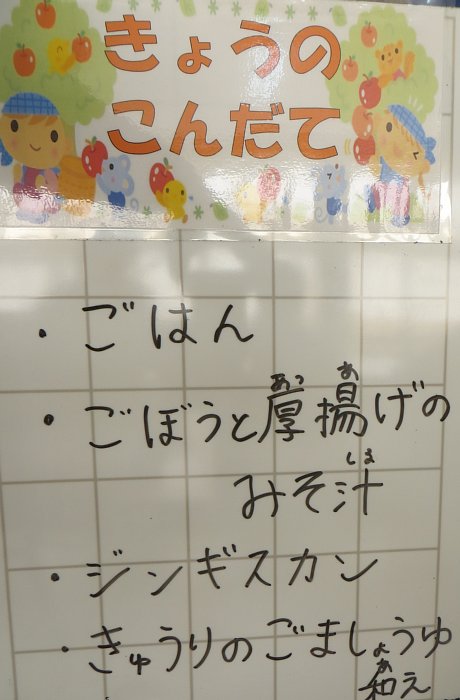 きょうの
こんだて
・ごはん
あつ あ
・ごぼうと厚揚げの
しる
みそ汁
・ジンギスカン
・きゅうりのごましょうゆ
あ
和え